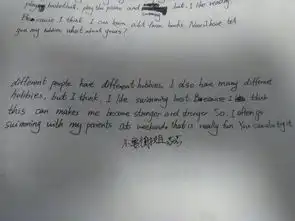 play basketball, play the piano and but. I like reading
Because I think I can learn a lot from books. Now I have tell
you my hobbies what about yours?
different people have different hobbies. I also have many different
hobbies, but I think. I like swimming best. Because I think
this can makes me become stronger and stronger So. I often go
swimming with my parents at weekends that is really fun. You can also try it